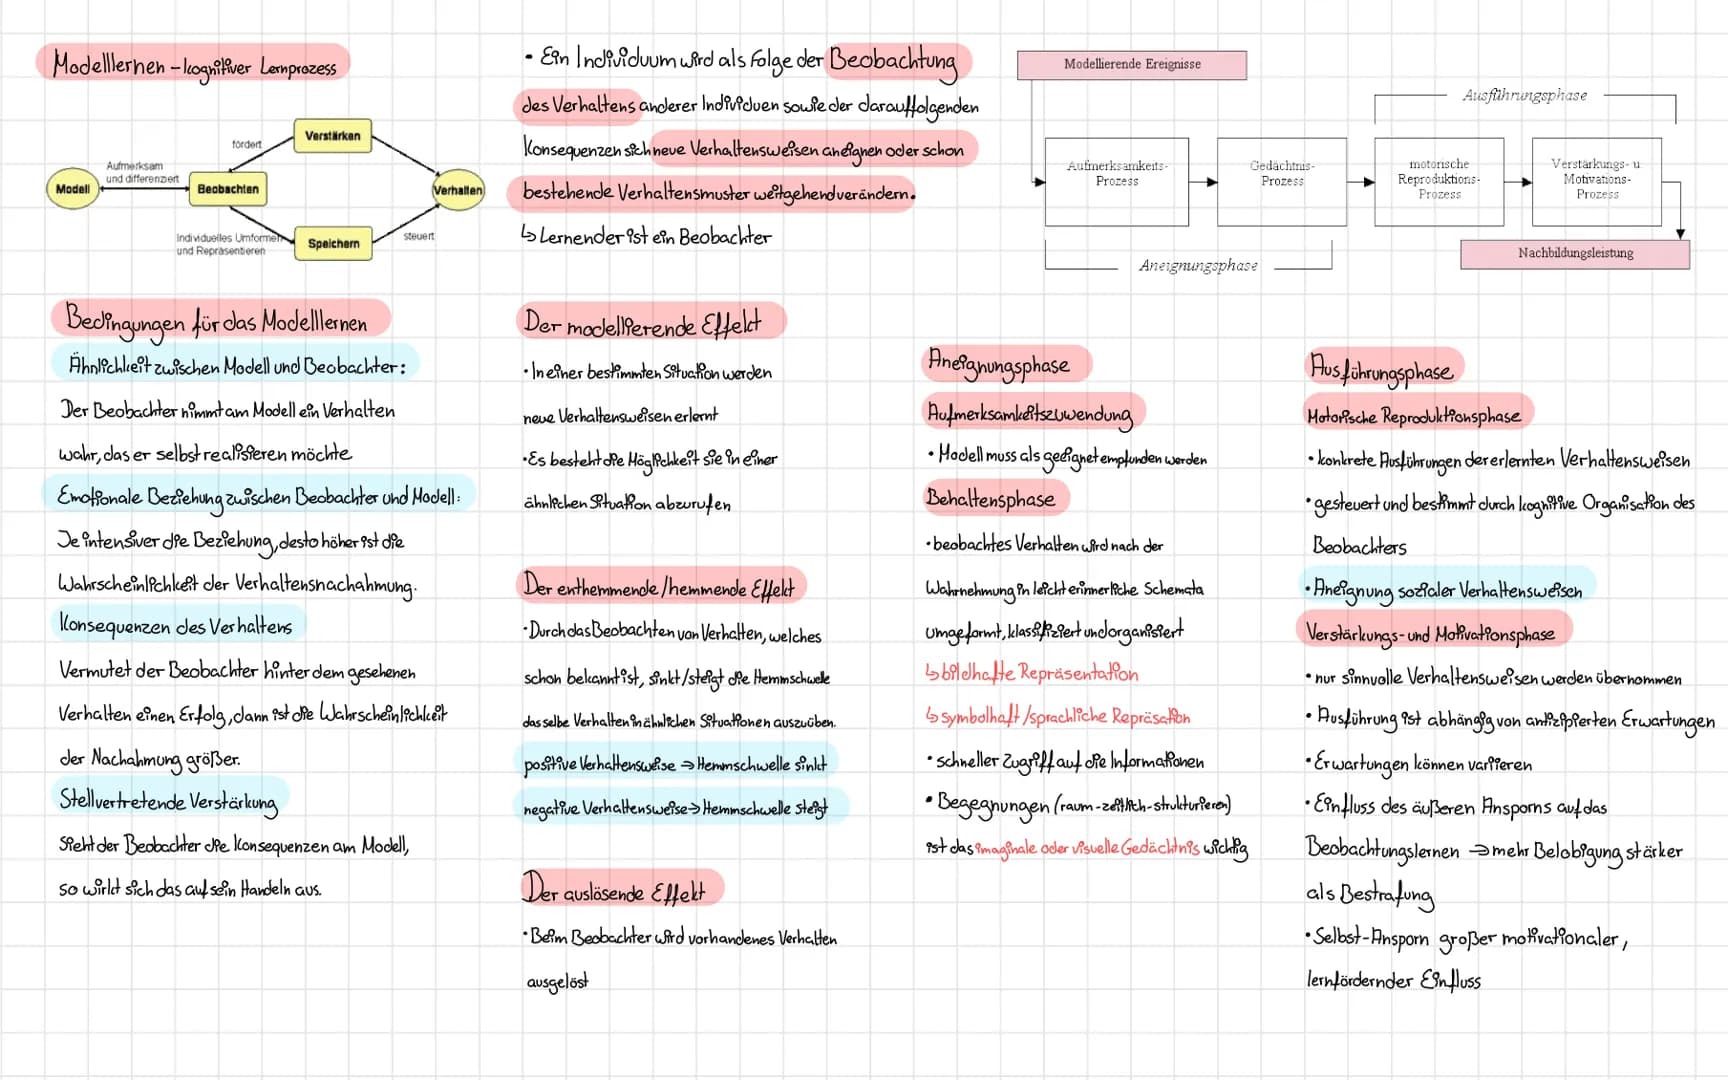 Modelllernen - kognitiver Lernprozess
fördert
Verstärken
Aufmerksam
und differenziert
Modell
Beobachten
Verhalten
Individuelles Umformen
und Repräsentieren
Speichern
steuert
• Ein Individuum wird als Folge der Beobachtung
des Verhaltens anderer Individuen sowie der darauffolgenden
Konsequenzen sich neue Verhaltensweisen aneignen oder schon
bestehende Verhaltensmuster weitgehend verändern.
↳ Lernender ist ein Beobachter
Modellierende Ereignisse
Ausführungsphase
Aufmerksamkeits-
Prozess
Gedächtnis-
Prozess
motorische
Reproduktions-
Prozess
Verstärkungs- u
Motivations-
Prozess
Aneignungsphase
Nachbildungsleistung
Bedingungen für das Modelllernen
Ähnlichkeit zwischen Modell und Beobachter:
Der Beobachter nimmt am Modell ein Verhalten
wahr, das er selbst realisieren möchte
Emotionale Beziehung zwischen Beobachter und Modell:
Je intensiver die Beziehung, desto höher ist die
Wahrscheinlichkeit der Verhaltensnachahmung.
Konsequenzen des Verhaltens
Vermutet der Beobachter hinter dem gesehenen
Verhalten einen Erfolg, dann ist die Wahrscheinlichkeit
der Nachahmung größer.
Stellvertretende Verstärkung
Sieht der Beobachter die Konsequenzen am Modell,
so wirkt sich das auf sein Handeln aus.
Der modellierende Effekt
• In einer bestimmten Situation werden
neue Verhaltensweisen erlernt
• Es besteht die Möglichkeit sie in einer
ähnlichen Situation abzurufen
Der enthemmende/hemmende Effekt
• Durch das Beobachten von Verhalten, welches
schon bekannt ist, sinkt/steigt die Hemmschwelle
das selbe Verhalten in ähnlichen Situationen auszuüben.
positive Verhaltensweise → Hemmschwelle sinkt
negative Verhaltensweise → Hemmschwelle steigt
Der auslösende Effekt
• Beim Beobachter wird vorhandenes Verhalten
ausgelöst
Aneignungsphase
Aufmerksamkeitszuwendung
• Modell muss als geeignet empfunden werden
Behaltensphase
• beobachtes Verhalten wird nach der
Wahrnehmung in leicht erinnerliche Schemata
umgeformt, klassifiziert und organisiert
↳ bildhafte Repräsentation
↳ symbolhaft/sprachliche Repräsation
• schneller Zugriff auf die Informationen
• Begegnungen (raum-zeitlich-strukturieren)
ist das imaginale oder visuelle Gedächtnis wichtig
Ausführungsphase
Motorische Reproduktionsphase
• konkrete Ausführungen der erlernten Verhaltensweisen
• gesteuert und bestimmt durch kognitive Organisation des
Beobachters
• Aneignung sozialer Verhaltensweisen
Verstärkungs- und Motivationsphase
• nur sinnvolle Verhaltensweisen werden übernommen
• Ausführung ist abhängig von antizipierten Erwartungen
• Erwartungen können variieren
• Einfluss des äußeren Ansporns auf das
Beobachtungslernen → mehr Belobigung stärker
als Bestrafung
• Selbst-Ansporn großer motivationaler,
lernfördernder Einfluss